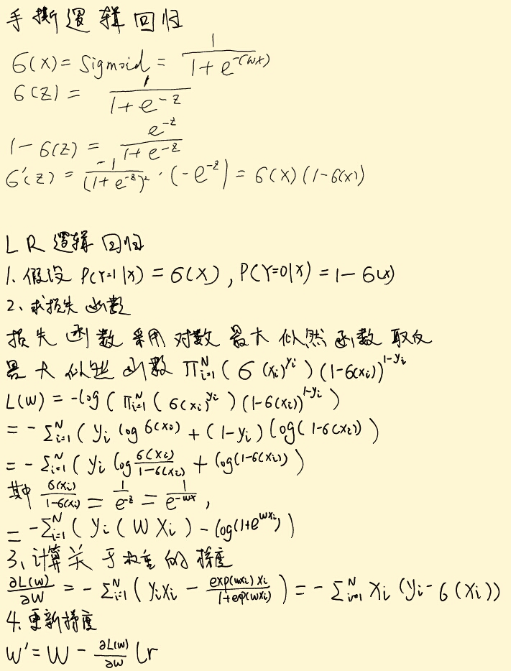 手撕逻辑回归
6(x) = Sigmoid = 1/(1+e^-(wx))
6(z) = 1/(1+e^-z)
1-6(z) = e^-z/(1+e^-z)
6'(z) = -1/(1+e^-z)² · (-e^-z) = 6(x)(1-6(x))
LR 逻辑回归
1. 假设 P(Y=1|x) = 6(x), P(Y=0|x) = 1-6(x)
2. 求损失函数
损失函数采用对数最大似然函数取反
最大似然函数 Π_{i=1}^N (6(xi)^yi)(1-6(xi))^{1-yi}
L(w) = -log(Π_{i=1}^N (6(xi)^yi)(1-6(xi))^{1-yi})
= -Σ_{i=1}^N (yi log6(xi) + (1-yi)(log(1-6(xi)))
= -Σ_{i=1}^N (yi log 6(xi)/(1-6(xi)) + log(1-6(xi)))
其中 6(xi)/(1-6(xi)) = 1/e^-z = 1/e^-wx,
= -Σ_{i=1}^N (yi(wxi) - log(1+e^{wxi}))
3. 计算关于权重的梯度
∂L(w)/∂w = -Σ_{i=1}^N (yixi - exp(wxi)xi/(1+exp(wxi))) = -Σ_{i=1}^N xi(yi-6(xi))
4. 更新梯度
w' = w - ∂L(w)/∂w lr